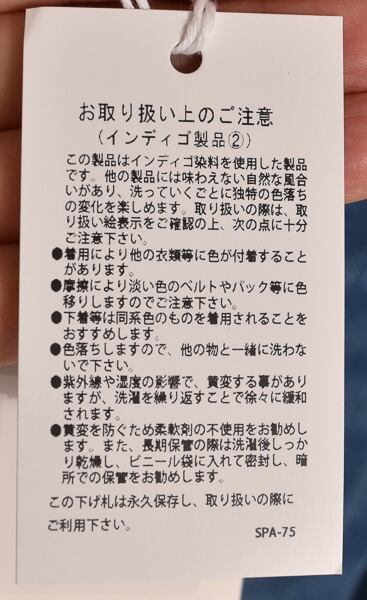 お取り扱い上のご注意
(インディゴ製品②)
この製品はインディゴ染料を使用した製品
です。他の製品には味わえない自然な風合
いがあり、洗っていくごとに独特の色落ち
の変化を楽しめます。取り扱いの際は、取
り扱い絵表示をご確認の上、次の点に十分
ご注意下さい。
●着用により他の衣類等に色が付着すること
があります。
●摩擦により淡い色のベルトやバック等に色
移りしますのでご注意下さい。
●下着等は同系色のものを着用されることを
おすすめします。
●色落ちしますので、他の物と一緒に洗わな
いで下さい。
●紫外線や湿度の影響で、黄変する事があり
ますが、洗濯を繰り返すことで徐々に緩和
されます。
●黄変を防ぐため柔軟剤の不使用をお勧めし
ます。また、長期保管の際は洗濯後しっか
り乾燥し、ビニール袋に入れて密封し、暗
所での保管をお勧めします。
この下げ札は永久保存し、取り扱いの際に
ご利用下さい。
SPA-75